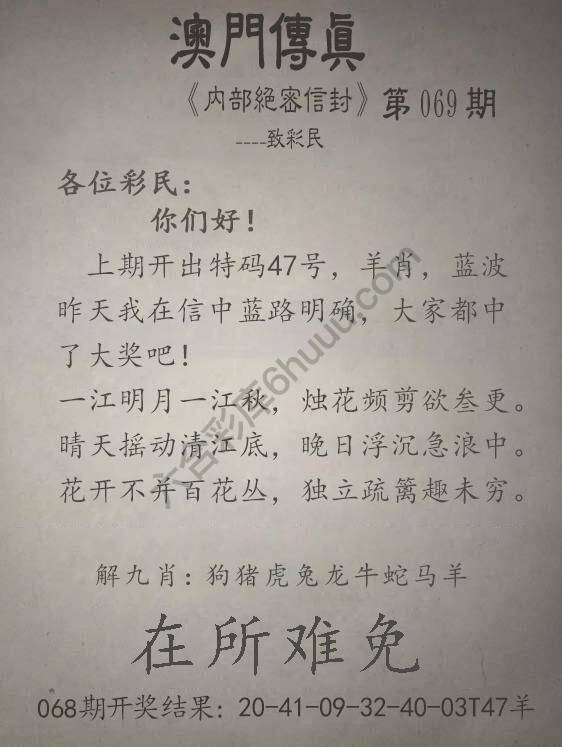 澳門傳眞
《内部絕密信封》第069期
----致彩民
各位彩民：
你们好！
上期开出特码47号，羊肖，蓝波
昨天我在信中蓝路明确，大家都中
了大奖吧！
一江明月一江秋，烛花频剪欲叁更。
晴天摇动清江底，晚日浮沉急浪中。
花开不并百花丛，独立疏篱趣未穷。
六合彩库6huuu.com
解九肖：狗猪虎兔龙牛蛇马羊
在所难免
068期开奖结果：20-41-09-32-40-03T47羊